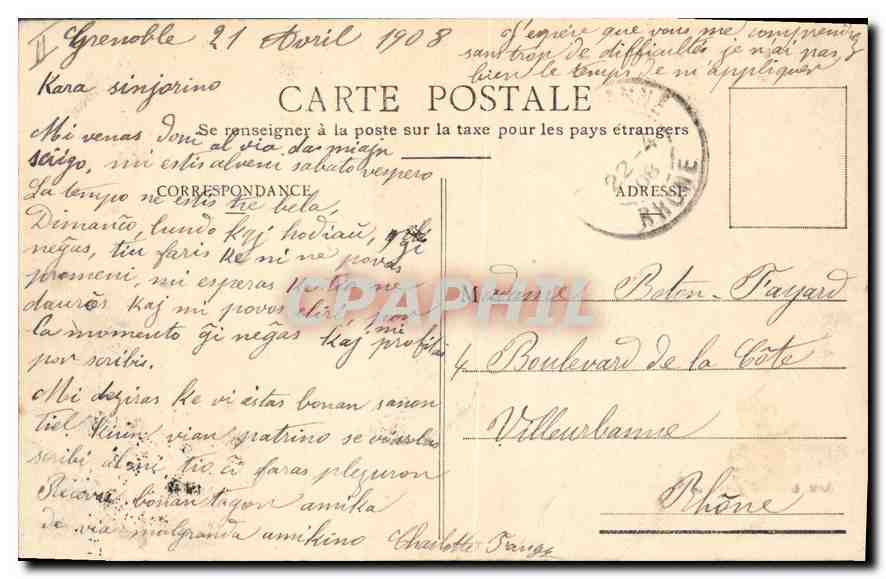 Grenoble 21 Avril 1908
J'espère que vous me comprendrez
sans trop de difficultés je n'ai pas
bien le temps de m'appliquer
Kara sinjorino
CARTE POSTALE
Se renseigner à la poste sur la taxe pour les pays étrangers
CORRESPONDANCE
ADRESSE
22 - 4
08
RHONE
Mi venas dom al via da miajn
serigo, mi estis alveni sabato vespero
La tempo ne estis tre bela,
Dimanĉo, lundo kaj hodiaŭ, ĝi
neĝas, tiu faris ke ni ne povas
promeni, mi esperas ke tio ne
daŭros kaj mi povos diri, por
la momento ĝi neĝas kaj mi profitas
por scribis.
Mi deziras ke vi estas bonan sanon
tiel kiun vian patrino se volas
scribi al mi tio ĉi faras plezuron
Ricevu bonan tagon amika
de via malgranda amikino
Charlotte
Madame Beton-Fayard
4 Boulevard de la Côte
Villeurbanne
Rhône
CPAPHIL